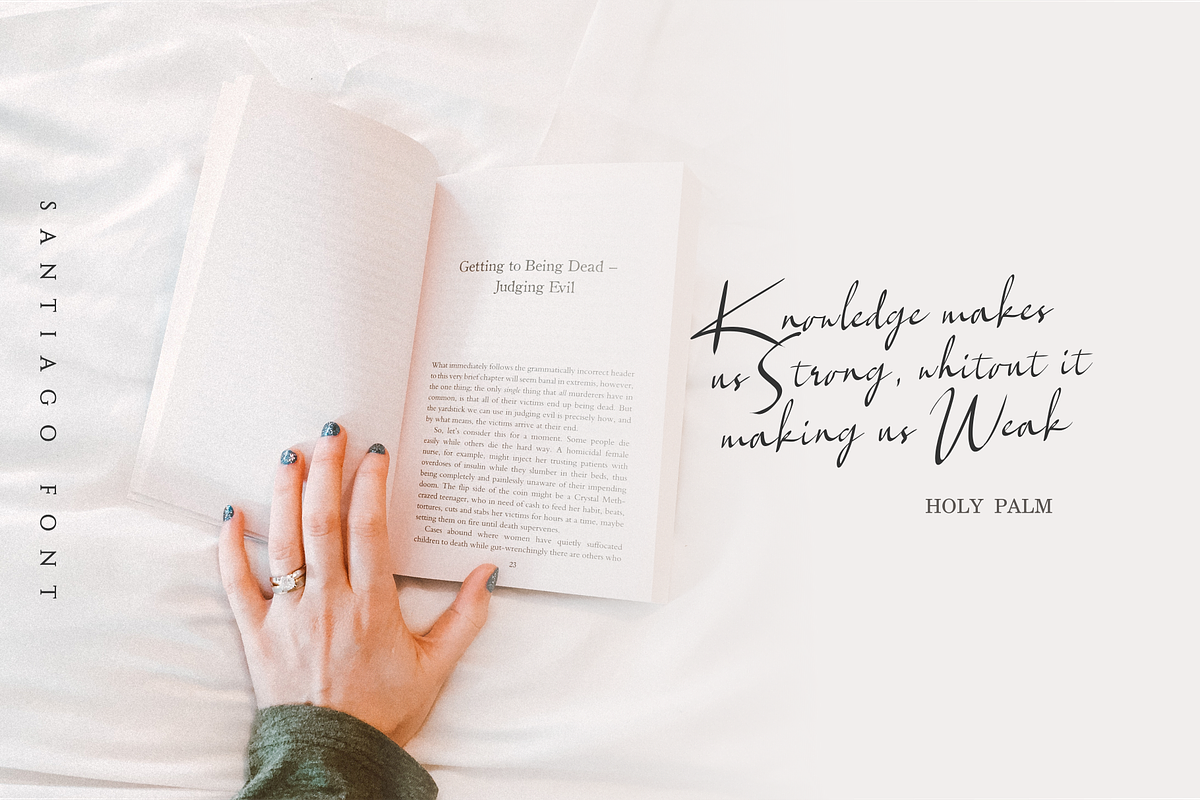 SANTIAGO FONT
Getting to Being Dead –
Judging Evil
What immediately follows the grammatically incorrect header
to this very brief chapter will seem banal in extremis, however,
the one thing; the only single thing that all murderers have in
common, is that all of their victims end up being dead. But
the yardstick we can use in judging evil is precisely how, and
by what means, the victims arrive at their end.
So, let's consider this for a moment. Some people die
easily while others die the hard way. A homicidal female
nurse, for example, might inject her trusting patients with
overdoses of insulin while they slumber in their beds, thus
being completely and painlessly unaware of their impending
doom. The flip side of the coin might be a Crystal Meth-
crazed teenager, who in need of cash to feed her habit, beats,
tortures, cuts and stabs her victims for hours at a time, maybe
setting them on fire until death supervenes.
Cases abound where women have quietly suffocated
children to death while gut-wrenchingly there are others who
23
Knowledge makes
us Strong, whitout it
making us Weak
HOLY PALM